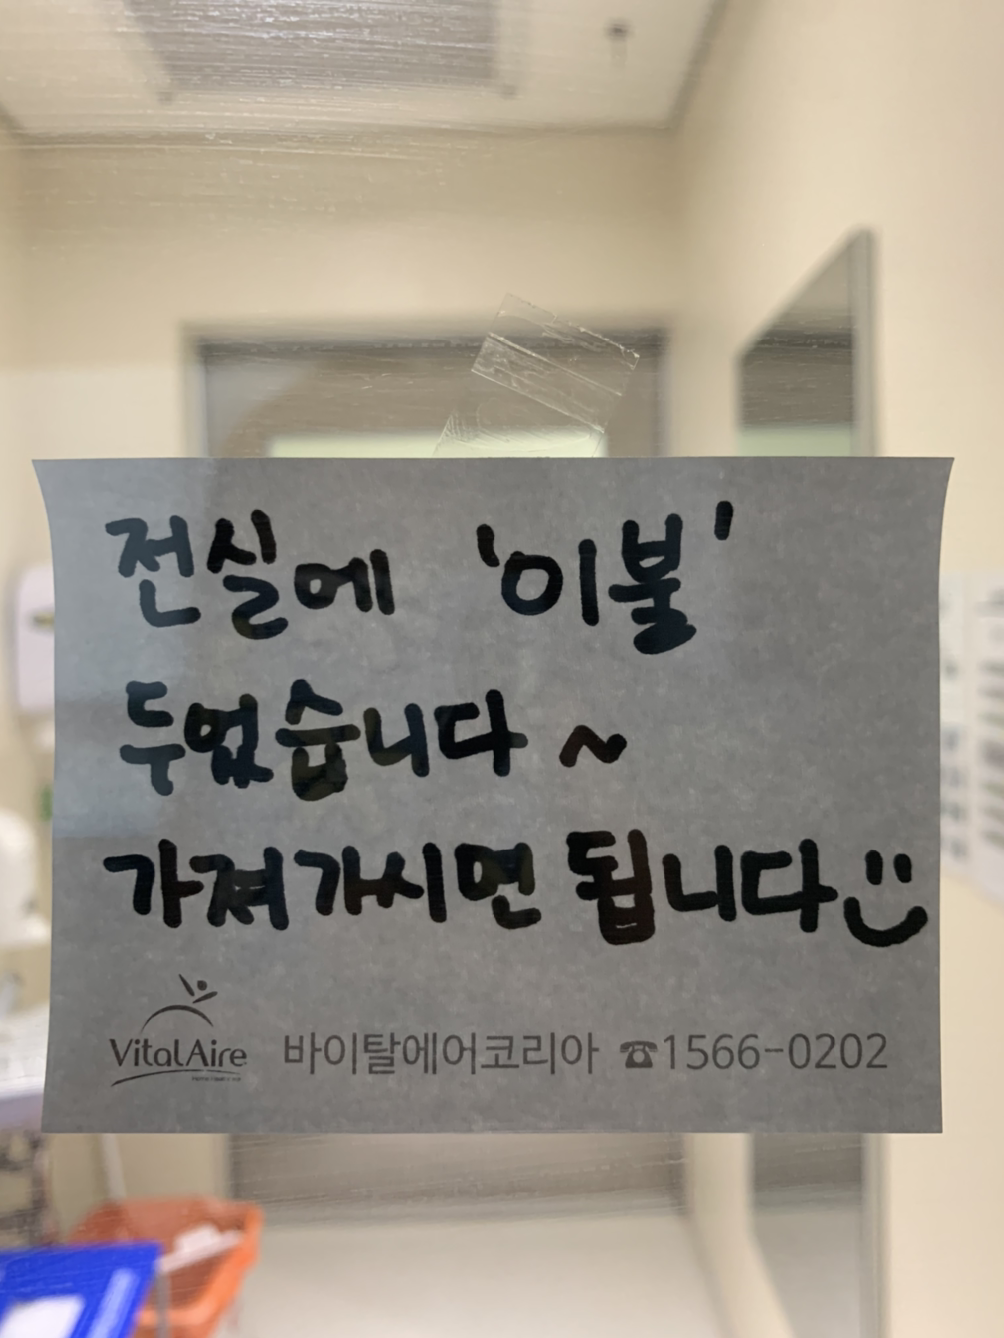 전실에 '이불'
두었습니다 ~
가져가시면 됩니다
VitalAire 바이탈에어코리아 ☎1566-0202